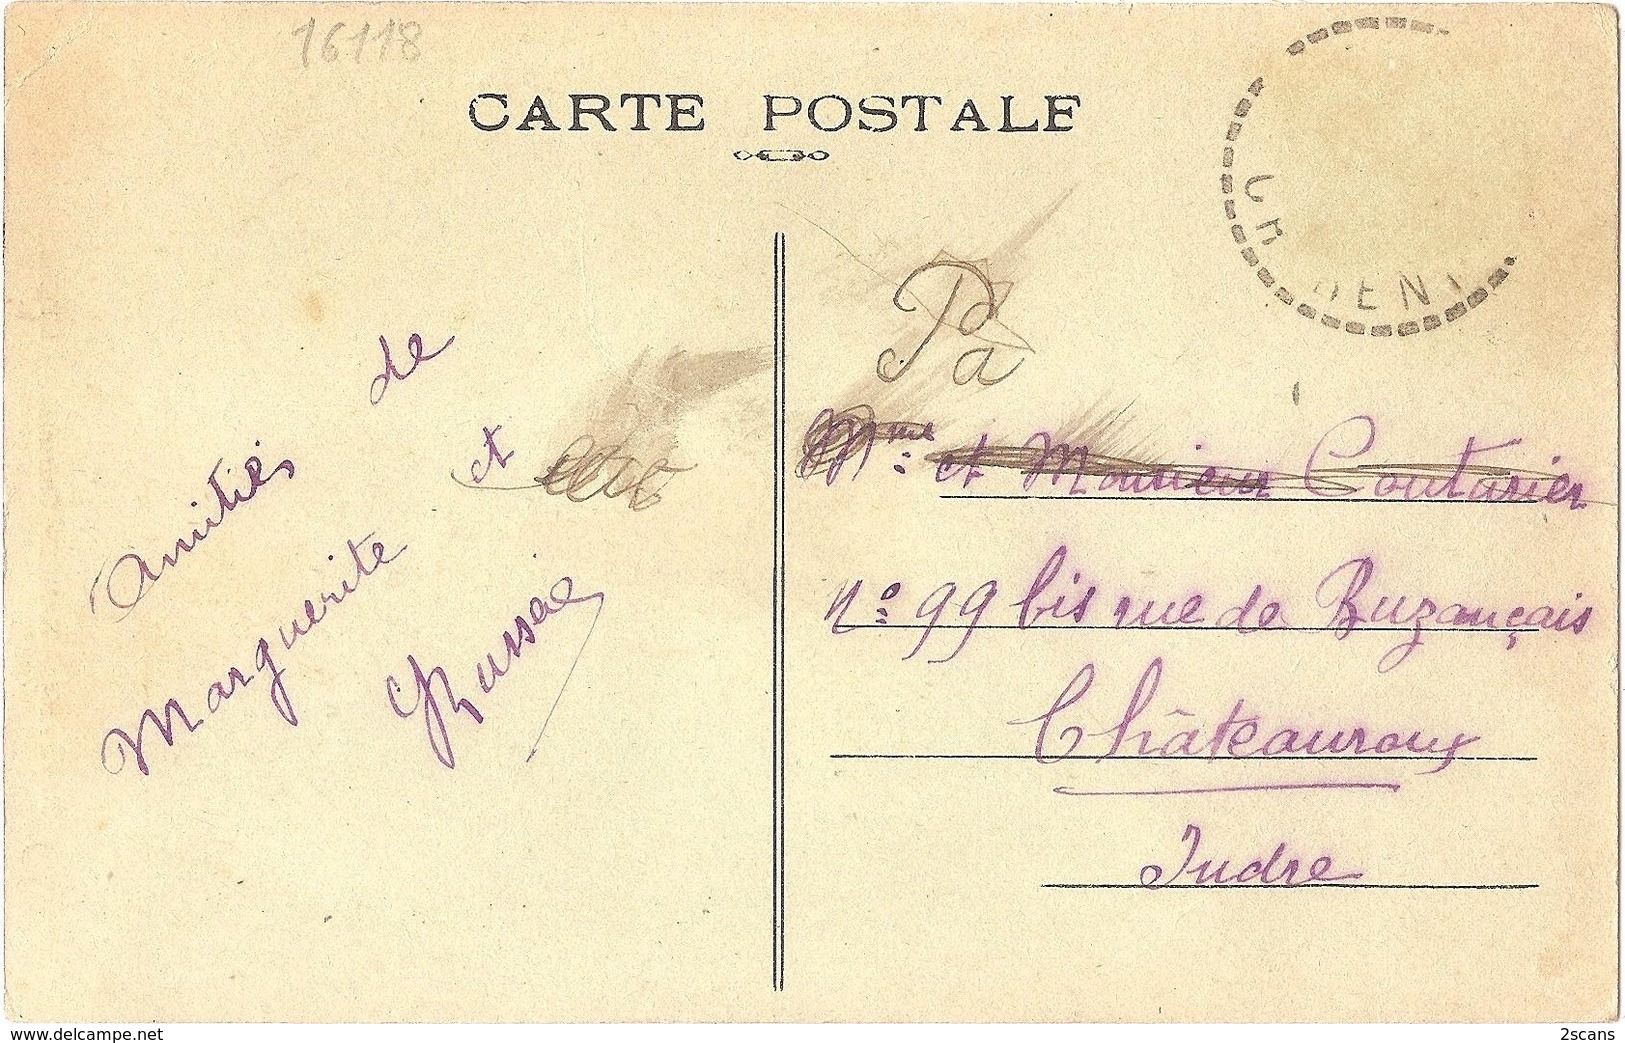 16118
CARTE POSTALE
Pa
Amitiés de
Marguerite et
Mme et Monsieur Coutarier
n° 99 bis rue de Buzançais
Châteauroux
Indre
delcampe.net
2scans